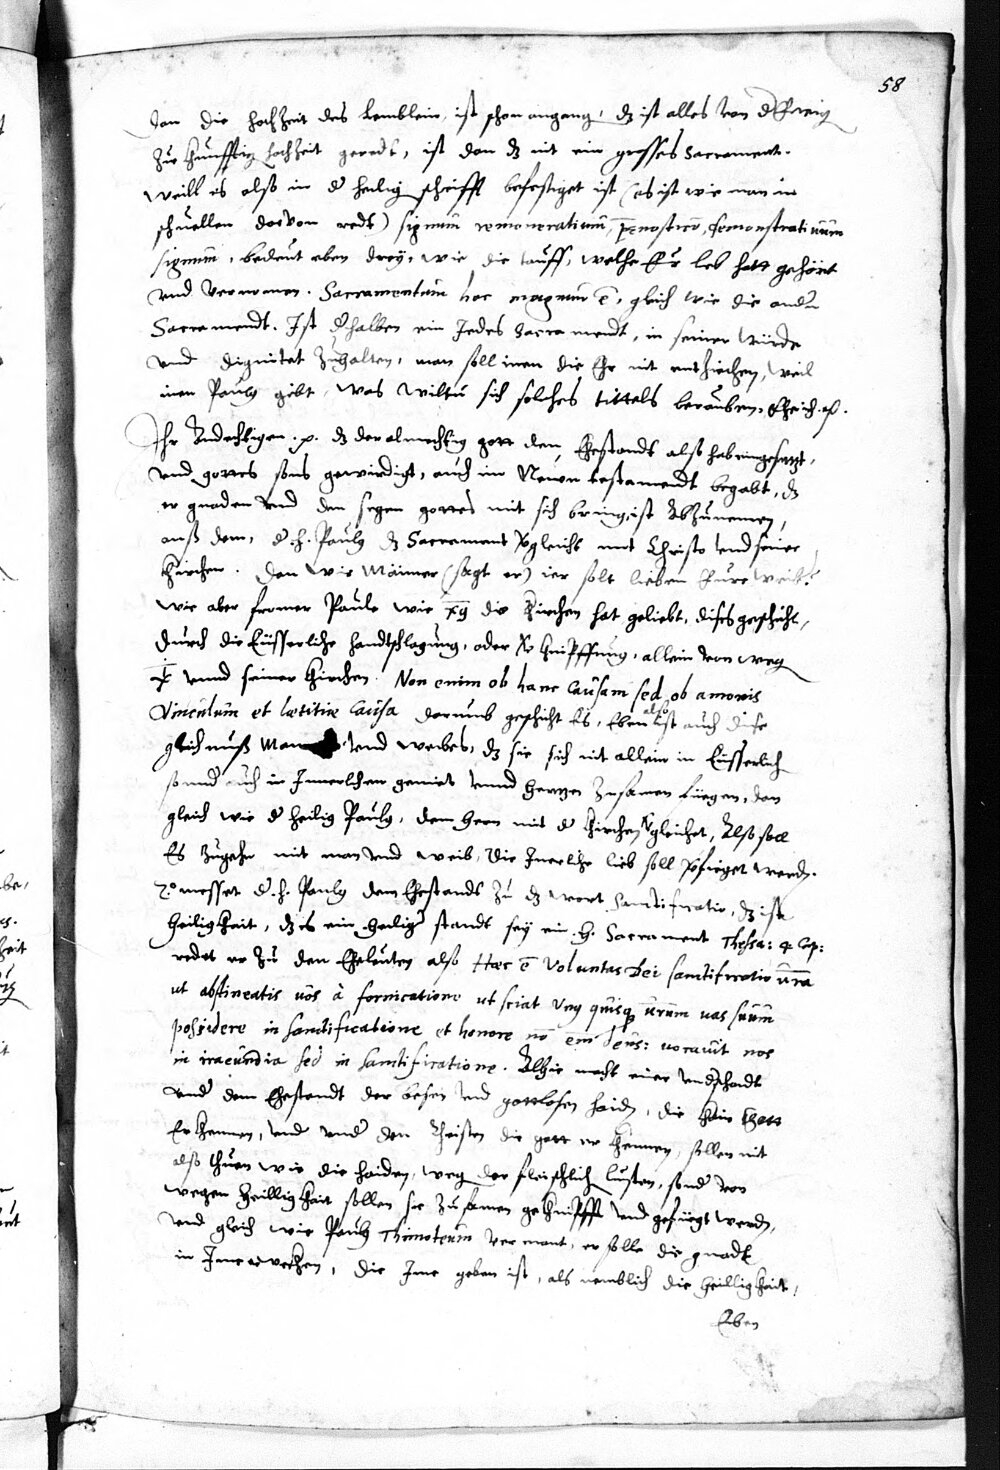 58
dan die hochZeit des Lemblein, ist schon angang, dz ist alles von d Ewig
Zue khunfftig hochZeit geredt, ist dan dz nit ein grosses Sacrament.
weill es also in d heilig schrifft befestiget ist (es ist wie man in
schuellen dorvon redt) signum rememoratiuum, prenosticum, demonstratiuum
signum, bedeut eben drey, wie die tauff, welche Eur lieb hatt gehört
vnd vernomen. Sacramentum hoc magnum ē, gleich wie die ander
Sacramendt. Ist dhalben ein Jedes Sacramendt, in seiner würde
vnd dignitet Zuhalten, man soll inen die Ehr nit entziechen, weil
inen Paulus gibt, was wiltu sich solches tittels berauben,
Ihr Andechtigen .p. dz der almechtig gott den Ehestandt also hab eingesezt,
vnd gottes sons gewirdigt, auch im Newen testamendt begabt, dz
er gnaden vnd den segen gottes mit sich bring, ist Abzunemen,
auß dem, d. h. Paulus dz Sacrament vgleicht mit Christo vnd seiner
Kirchen. Dan wie Männer (sagt er) ier solt lieben Eure weib:
wie aber fromer Paule wie xps die Kirchen hat geliebt, dises geschicht,
durch die Eusserliche handtschlagung, oder Vkhnipffung, allein von weg
X vnnd seiner Kirchen. Non enim ob hanc causam sed ob amoris
vinculum et lætitiæ causa darumb geschicht Es, Eben also ist auch dise
gleichnuß Man vnd weibes, dz sie sich nit allein in Eusserlich
sonnd auch in Innerlichen gemiet vnnd hertzen Zusamen fuegen, dan
gleich wie d heilig Paulus, den hern mit d Kirchen Vgleichet, Also soll
Es Zugehn mit man vnd weib, die Inerliche lieb soll Vfieget werd.
2º messet d. h. Paulus dem Ehestandt Zu dz wort sanctificatio, dz ist
heiligkheit, dz es ein heiliger standt sey ein h. Sacrament Thessa: 4 Cap:
redet er Zu den Eheleuten also Hæc ē voluntas Dei sanctificatio vra
ut abstineatis uos à fornicatione ut sciat vnusquisq urum uas suum
possidere in sanctificatione et honore no em deus: uocauit nos
in iracundia sed in sanctificatione. Alhie macht einer vndschaidt
vnd dem Ehestandt der besen vnd gottlosen haid, die khein Gott
Erkhennen, vnd vnd den Christen die gott erkhennen, sollen nit
also thuen wie die haiden, weg der fleischlich lusten, sond von
wegen heilligkhait sollen sie Zusamen gekhnipfft vnd gefüegt werd,
vnd gleich wie Paulus Thimoteum vermant, er solle die gnadt
in Ime erwecken, die Ime geben ist, als nemblich die heilligkhait,
Eben